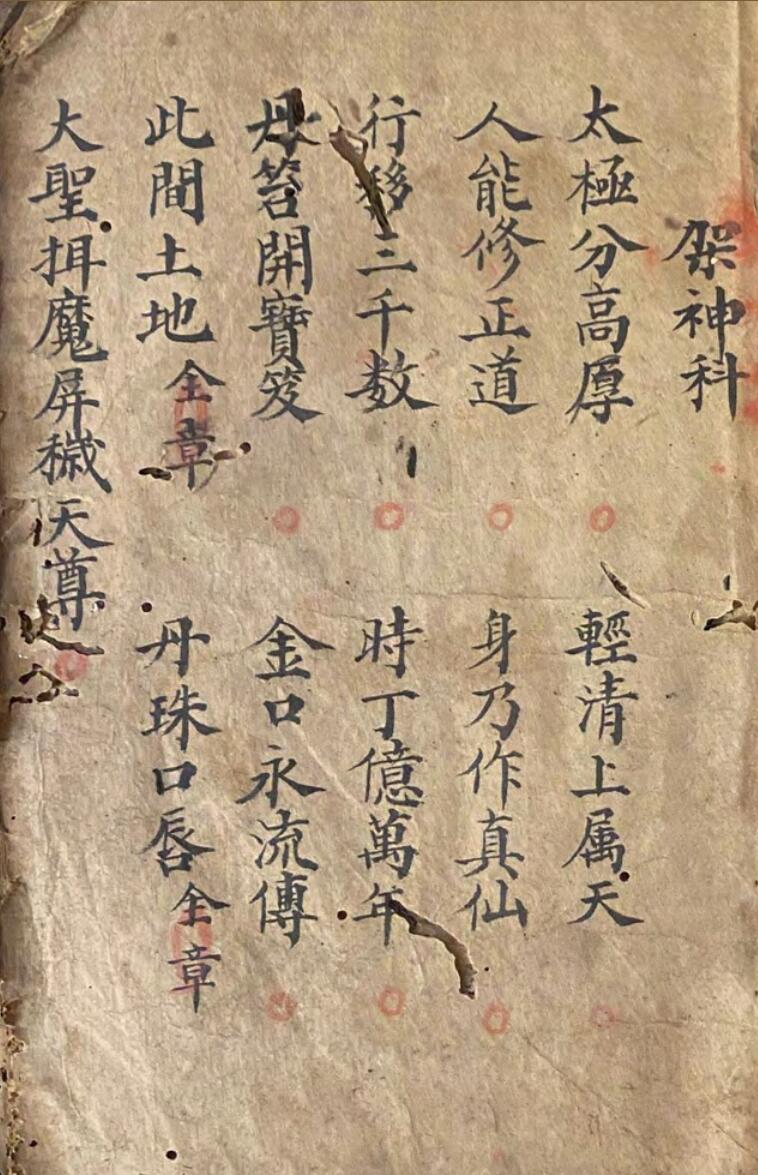 架神科
太極分高厚　輕清上属天
人能修正道　身乃作真仙
行移三千数　時丁億萬年
丹笤開寶笈　金口永流傳
此間土地全章　丹珠口唇全章
大聖挕魔屏穢天尊